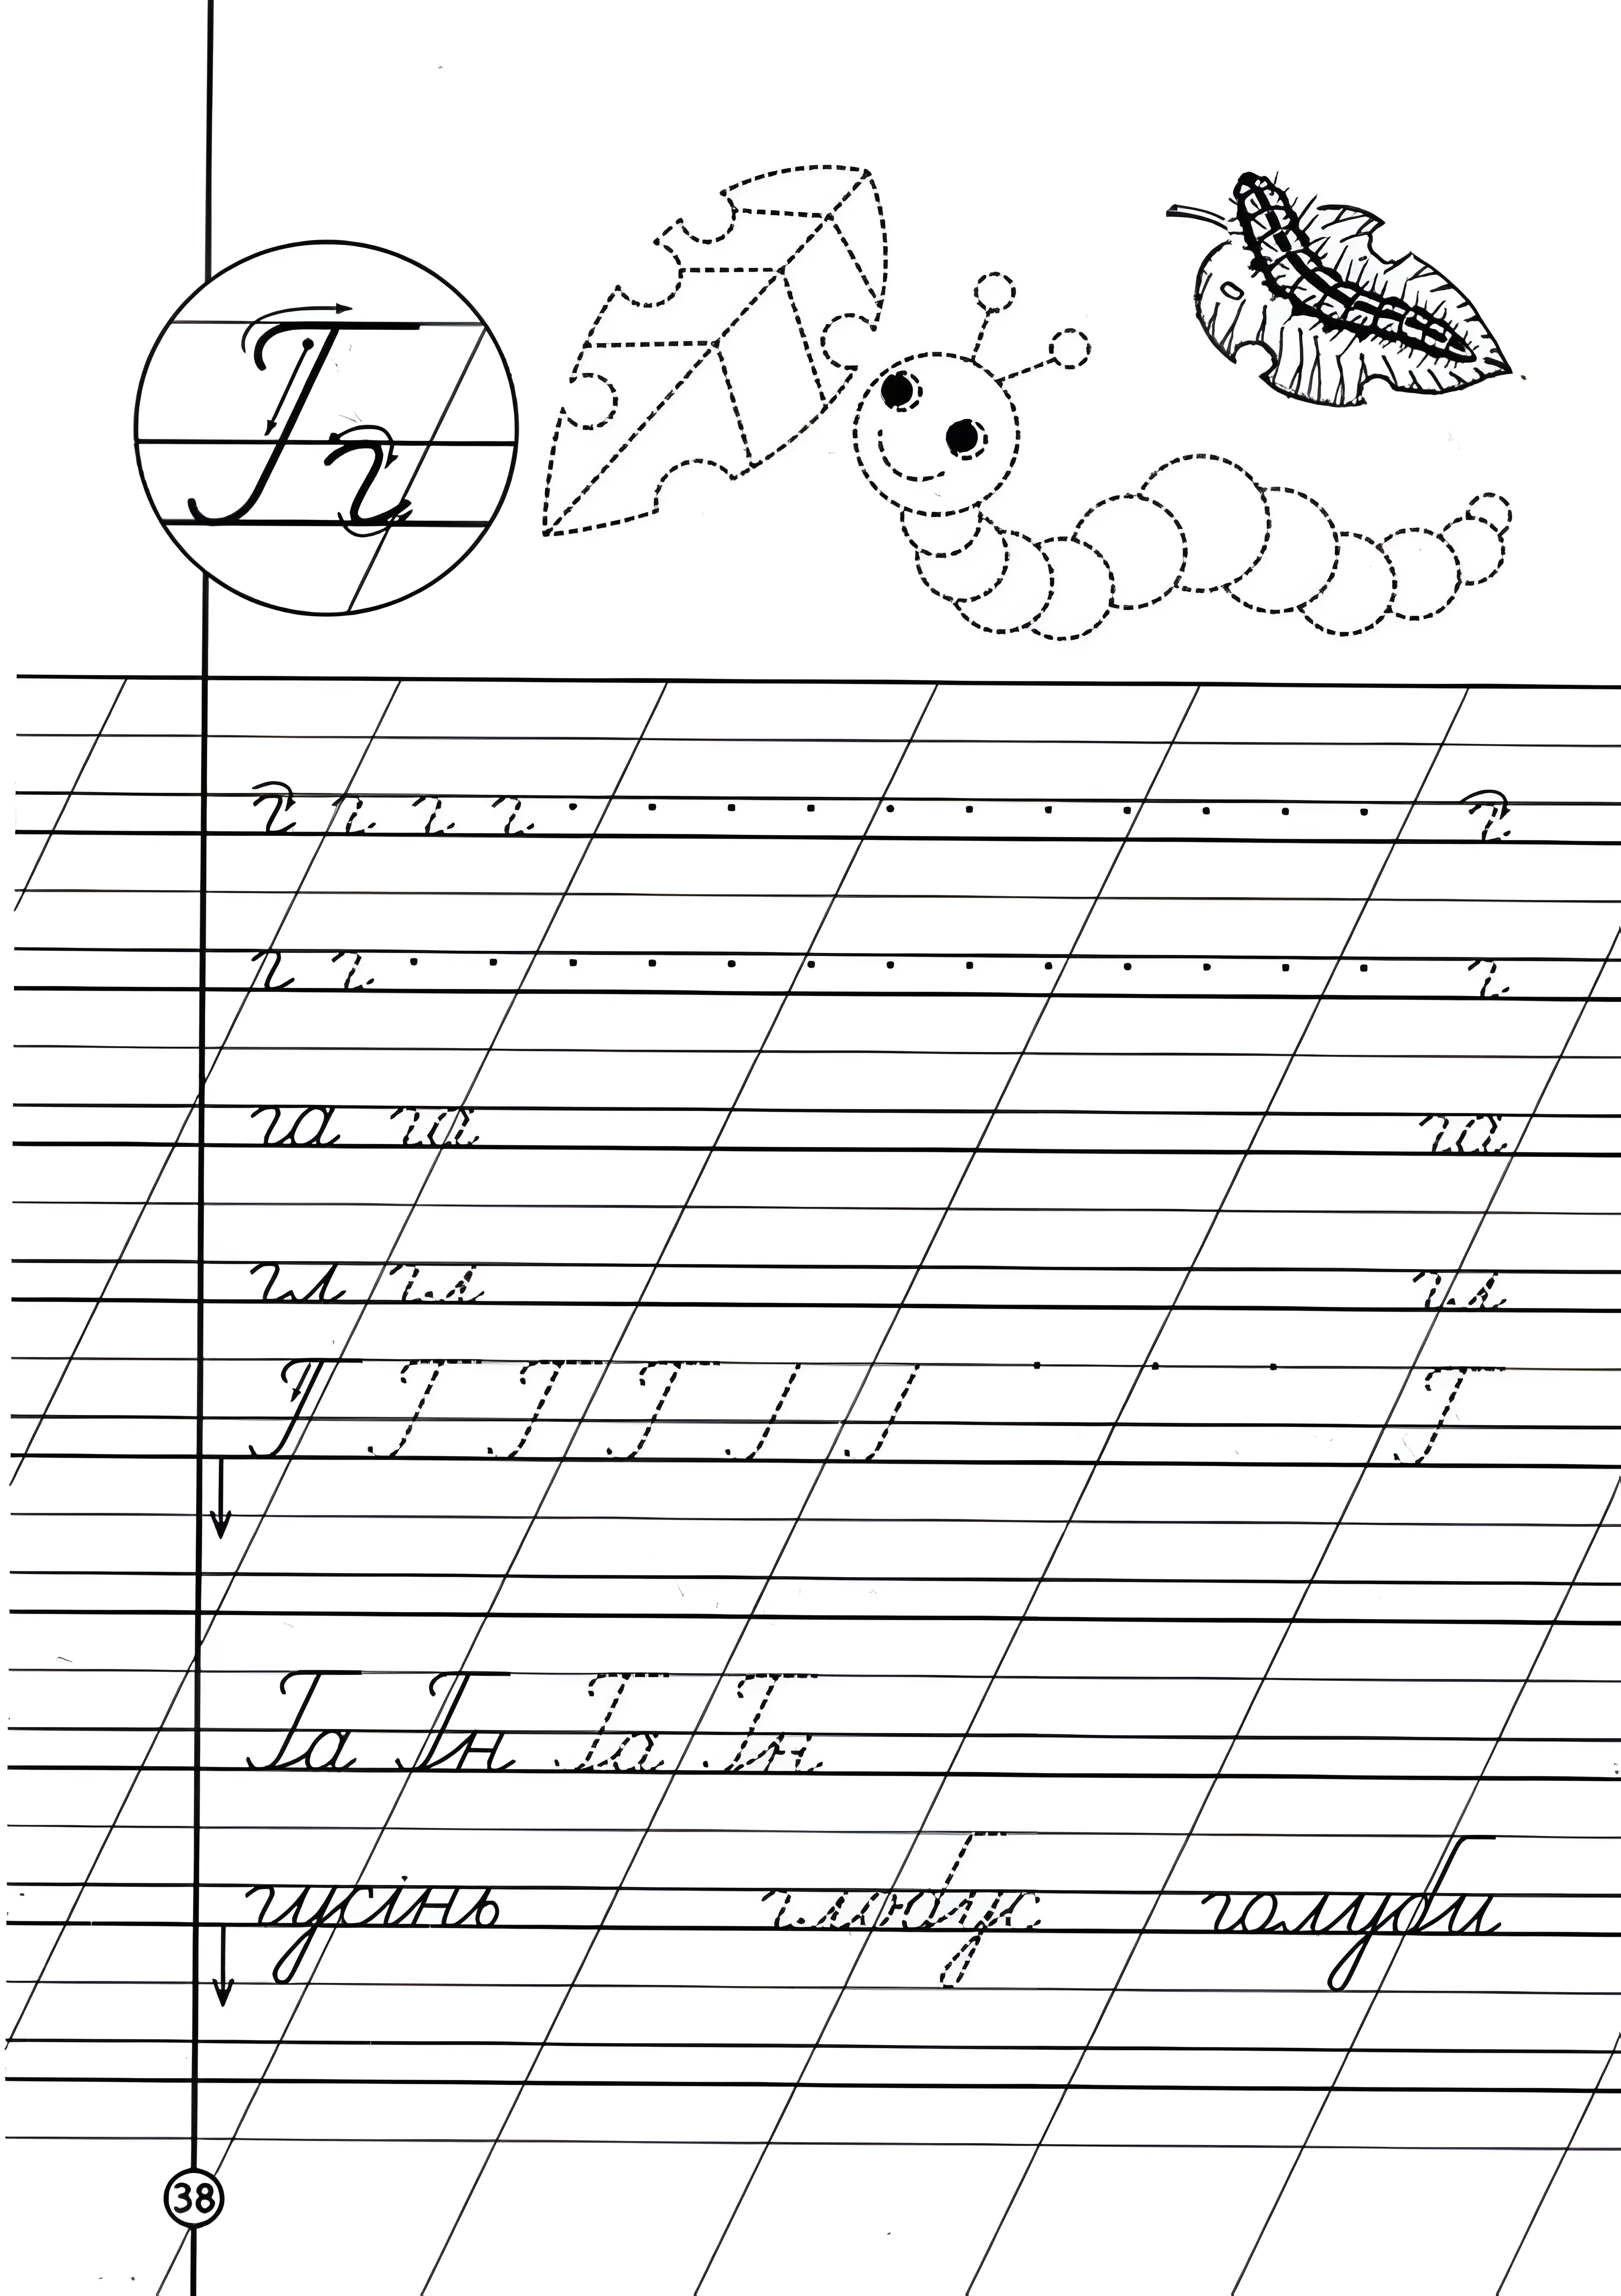 Г г
г г г г г
г г г
га га га
гл гл гл
Г Г Г Г Г
Га Гн Га Гн
гусінь глобус голуби
38